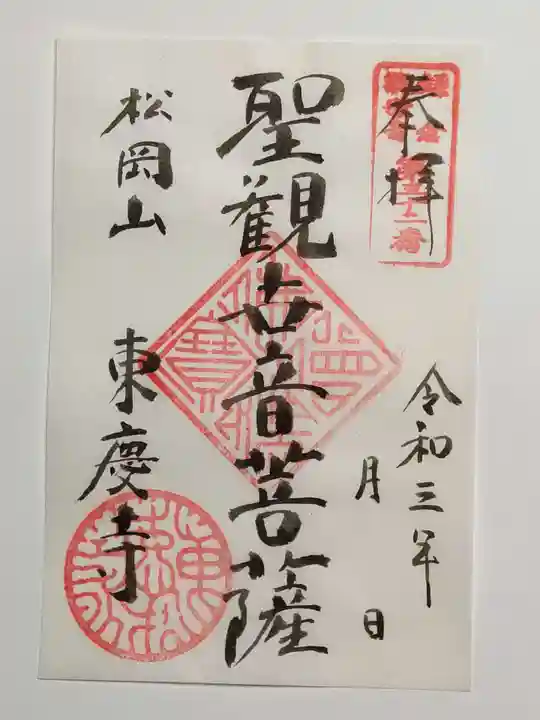 奉拝
十二番
令和三年
月 日
聖觀世音菩薩
松岡山 東慶寺